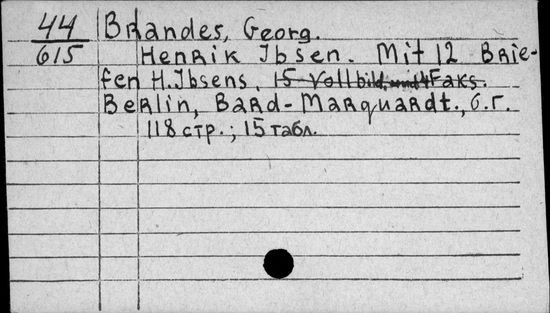 44 Brandes, Georg.
615 Henrik Ibsen. Mit 12 Brie-
fen H. Ibsens, 15 Vollbild. und 4 Faks.
Berlin, Bard-Marquardt., б.г.
118 стр.; 15 табл.